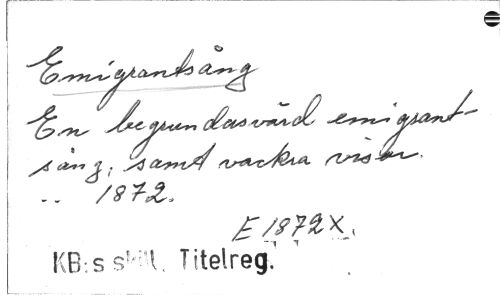 Emigrantsång
En begrundasvärd emigrant-
sång, samt vackra visor.
.. 1872.
E 1872 X.
KB:s skill. Titelreg.